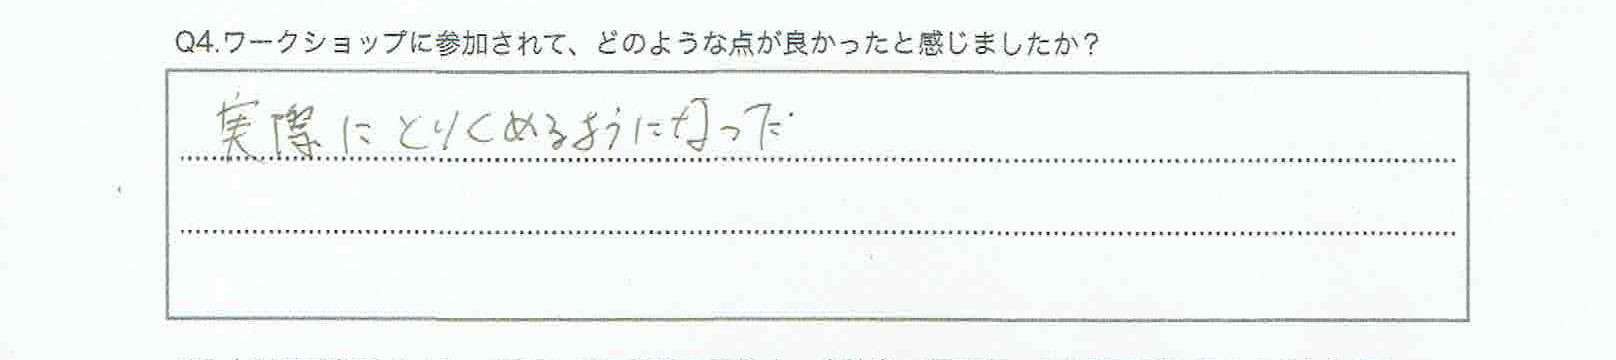 Q4.ワークショップに参加されて、どのような点が良かったと感じましたか？
実際にとりくめるようになった